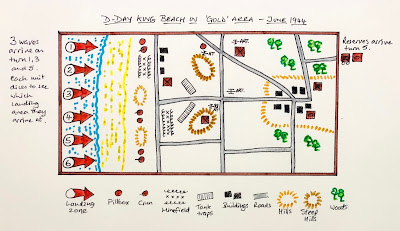 D-DAY KING BEACH IN 'GOLD' AREA - JUNE 1944
3 waves
arrive on
turn 1, 3
and 5.
Each unit
dices to see
which
landing
area they
arrive at.
1
2
3
4
5
6
Reserves arrive
turn 5.
Landing
zone
Pillbox
Gun
Minefield
Tank
traps
Buildings
Roads
Hills
Steep
Hills
Woods